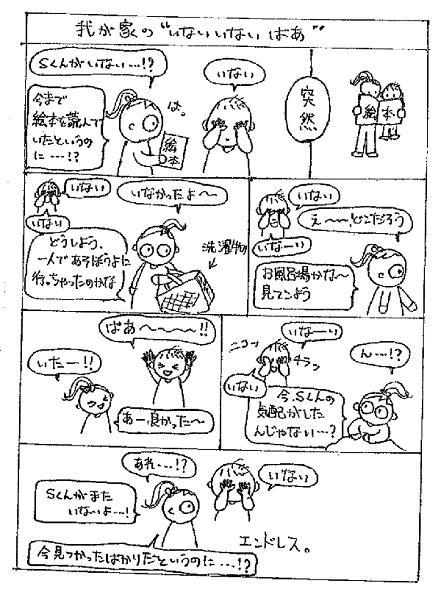 我が家の“いないいないばあ”
突然
絵本
いない
Sくんがいない…!?
は。
今まで
絵本を読んで
いたというの
に…!?
絵本
いない
え〜〜!どこだろう
いなーい
お風呂場かな〜
見てこよう
いない
いなかったよ〜
いない
どうしよう、
一人であそぼうよに
行っちゃったのかな
洗濯物
いなーい
ニコッ
チラッ
ん…!?
いない
今、Sくんの
気配がした
んじゃない…?
ばあ〜〜〜〜!!
いたー!!
あー、良かった〜
あれ…!?
いない
Sくんがまた
いないよ…!
今見つかったばかりだというのに…!?
エンドレス。